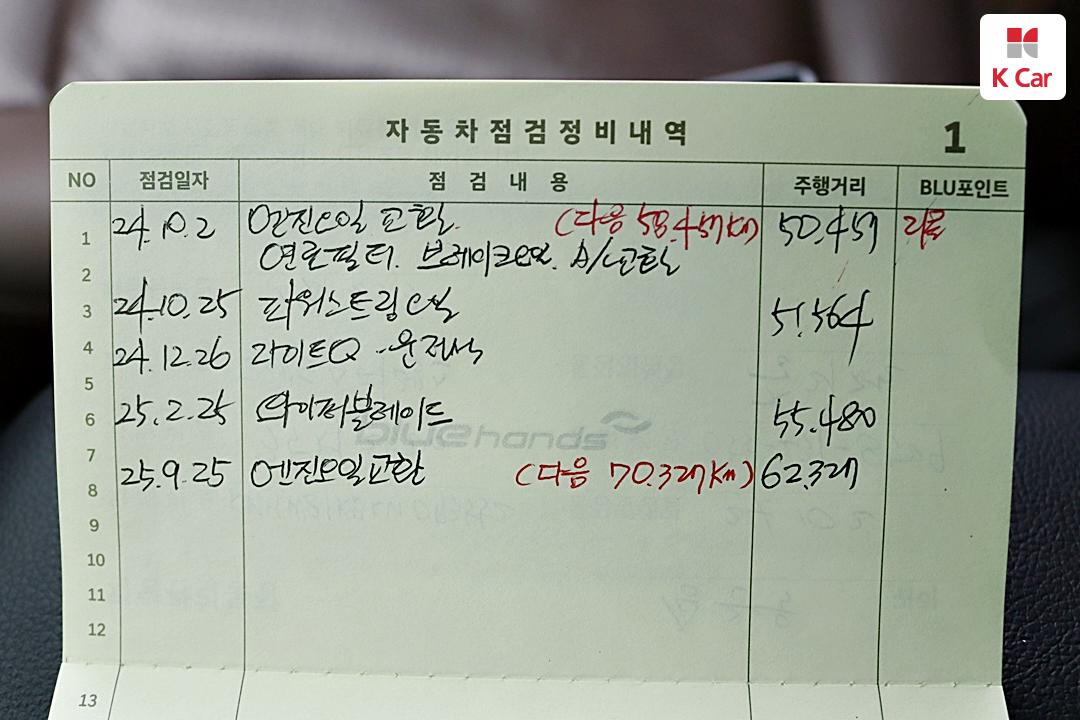 K Car
자동차점검정비내역 1
NO 점검일자 점검내용 주행거리 BLU포인트
1 24.10.2 엔진오일 교환. (다음 58.457km) 50.457
2 연료필터. 브레이크오일. A/C교환
3 24.10.25 파워스트링오일 51.564
4 24.12.26 라이트Q - 운전석
5
6 25.2.25 와이퍼블레이드 55.480
7 bluehands
8 25.9.25 엔진오일교환 (다음 70.327km) 62.327
9
10
11
12
13